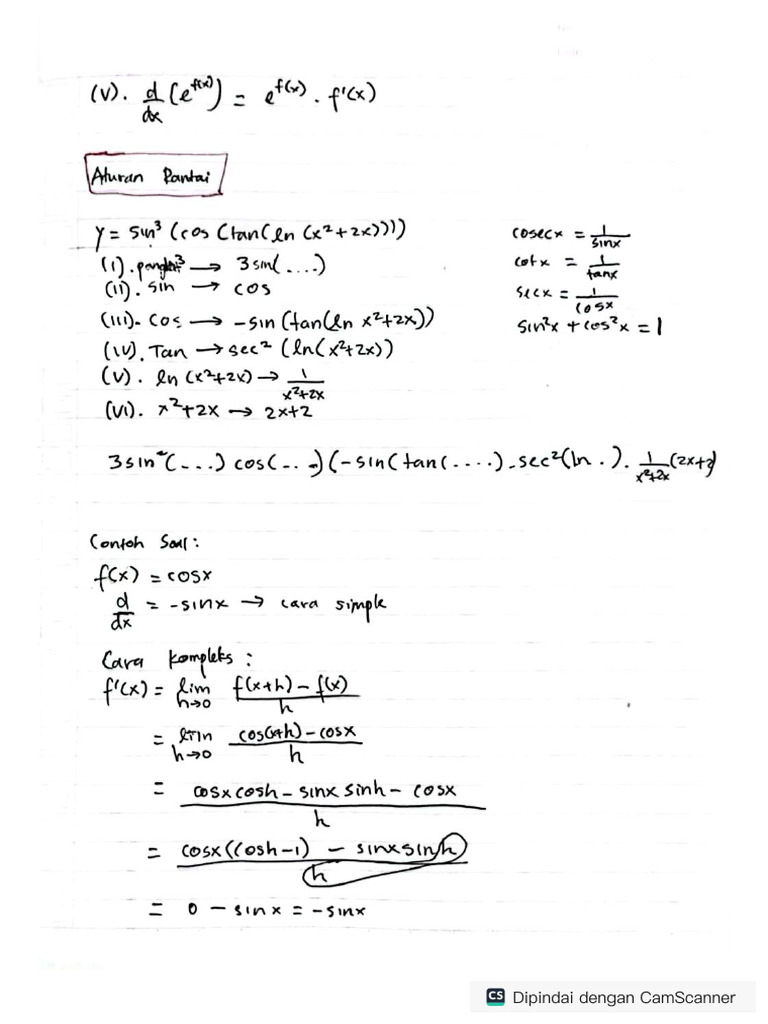 (V). d/dx (e^f(x)) = e^f(x) . f'(x)
Aturan Rantai
y = sin³ (cos (tan(ln (x²+2x))))
(I). pangkat 3 → 3 sin(....)
(II). sin → cos
(III). cos → -sin (tan(ln x²+2x))
(IV). Tan → sec² (ln(x²+2x))
(V). ln (x²+2x) → 1/x²+2x
(VI). x²+2x → 2x+2
cosec x = 1/sinx
cotx = 1/tanx
secx = 1/cosx
sin²x + cos²x = 1
3 sin²(...) cos(...) (-sin(tan(....). sec²(ln .). 1/x²+2x (2x+2)
Contoh Soal:
f(x) = cosx
d/dx = -sinx → cara simple
Cara Kompleks :
f'(x) = lim h→0 f(x+h) - f(x) / h
= lim h→0 cos(x+h) - cosx / h
= cosx cosh - sinx sinh - cosx / h
= cosx((cosh-1) - sinx sinh / h
= 0 - sinx = -sinx
CS Dipindai dengan CamScanner